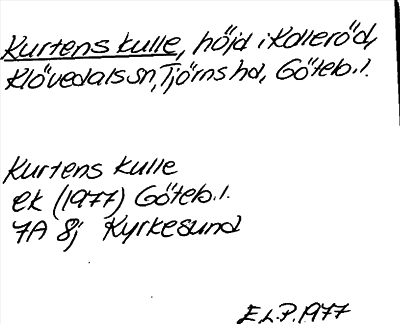 Kurtens kulle, höjd i Kolleröd,
Klövedals sn, Tjörns hd, Göteb. l.
Kurtens kulle
ek (1977) Göteb. l.
7A 8j Kyrkesund
E.L.P. 1977